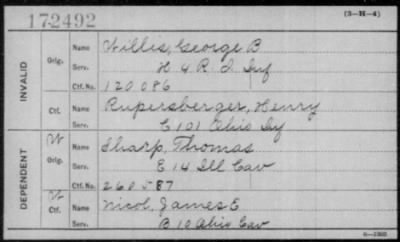 172492
(3-H-4)
INVALID
Orig. Name Willis, George B
Serv. H 4 R. I. Inf
Ctf. No. 120086
Ctf. Name Rupersberger, Henry
Serv. C 101 Ohio Inf
DEPENDENT
W
Orig. Name Sharp, Thomas
Serv. E 14 Ill Cav
Ctf. No. 260587
W
Ctf. Name Nicol, James E
Serv. B 10 Ohio Cav